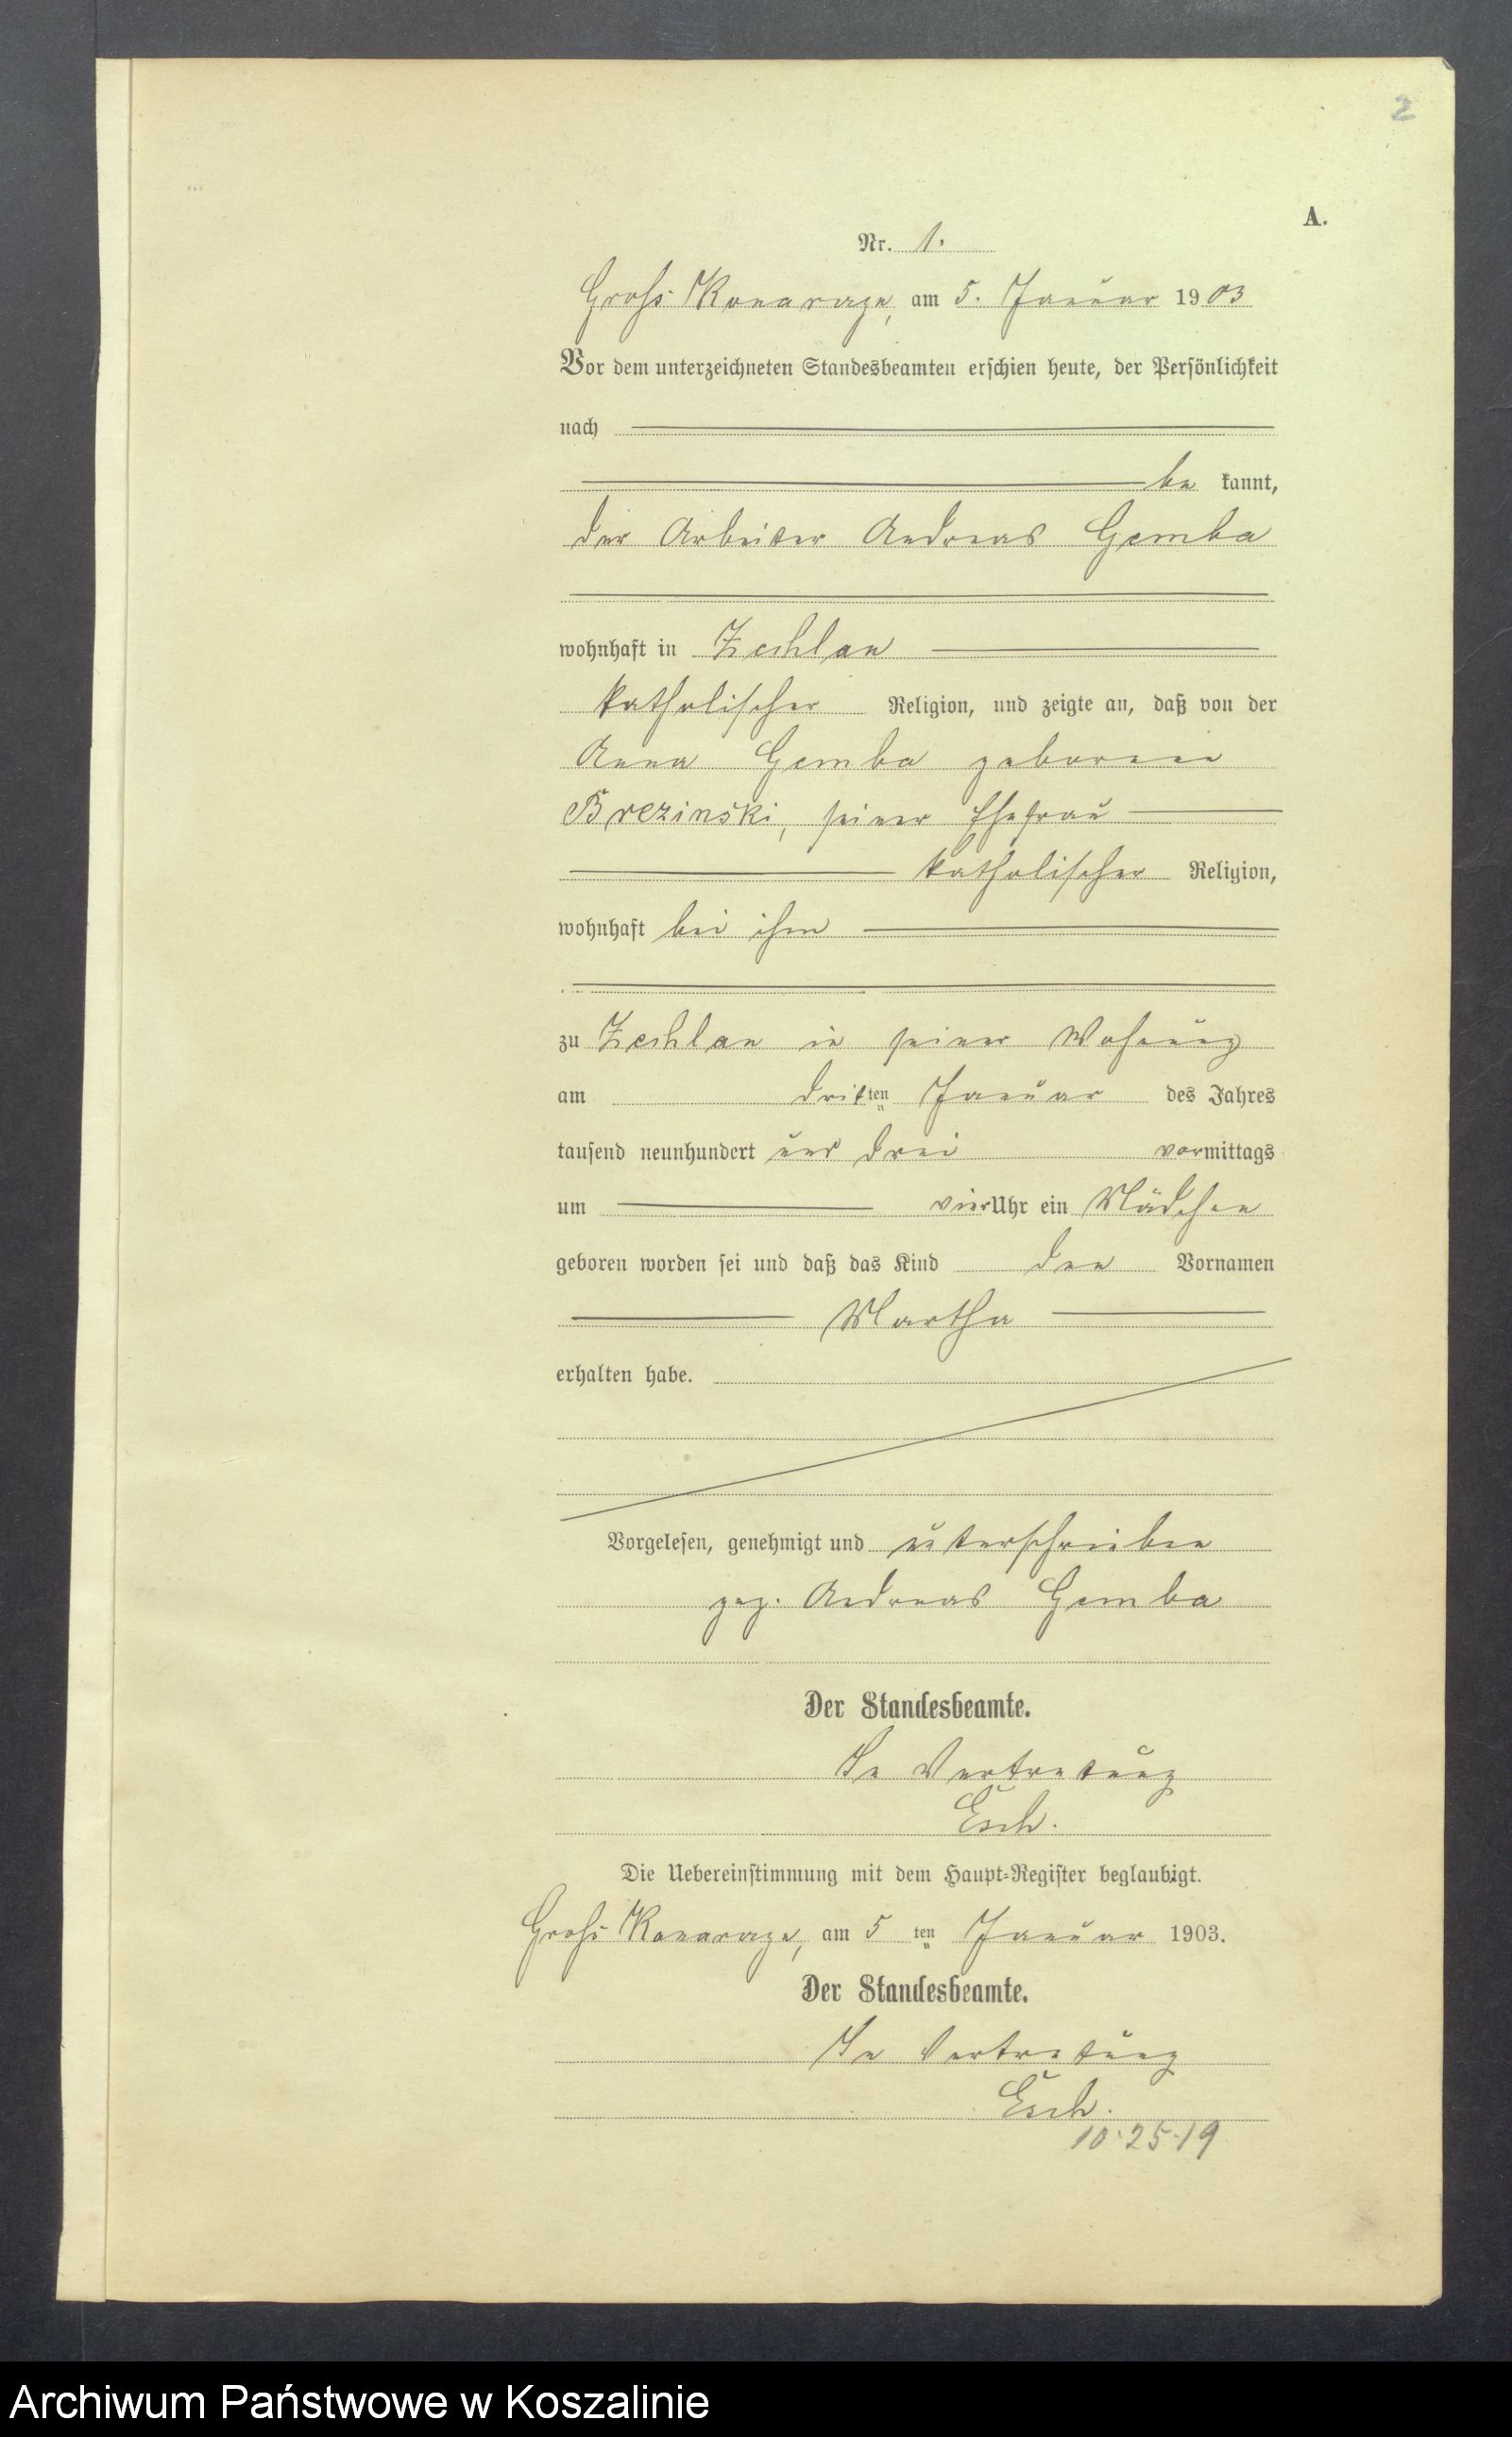 2
A.
Nr. 1.
Gross Konarczyn, am 5. Januar 1903
Vor dem unterzeichneten Standesbeamten erschien heute, der Persönlichkeit
nach
be kannt,
der Arbeiter Andreas Gemba
wohnhaft in Zechlau
katholischer Religion, und zeigte an, daß von der
Anna Gemba geborenen
Brezinski, seiner Ehefrau
katholischer Religion,
wohnhaft bei ihm
zu Zechlau in seiner Wohnung
am dritten Januar des Jahres
tausend neunhundert und drei vormittags
um vier Uhr ein Mädchen
geboren worden sei und daß das Kind den Vornamen
Martha
erhalten habe.
Vorgelesen, genehmigt und unterschrieben
gez. Andreas Gemba
Der Standesbeamte.
In Vertretung
Esch.
Die Uebereinstimmung mit dem Haupt-Register beglaubigt.
Gross, am 5 ten Januar 1903.
Der Standesbeamte.
In Vertretung
Esch.
10·25·19
Archiwum Państwowe w Koszalinie